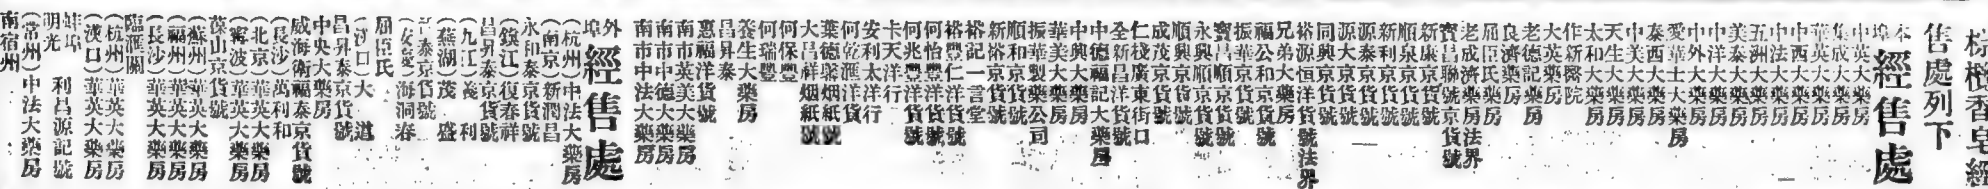 棕欖香皂經
售處列下
本埠經售處
中英大藥房
集成大藥房
華英大藥房
中西大藥房
中法大藥房
五洲大藥房
美泰大藥房
中洋大藥房
中外大藥房
愛華士大藥房
泰西大藥房
中美大藥房
天生大藥房
太和大藥房
作新醫院
大英藥房
老德記藥房
良濟藥房
屈臣氏藥房
老成濟藥房法界
寶昌聯號京貨號
新康京貨號
順泉京貨號
新利京貨號
源泰京貨號
源大京貨號
同興京貨號
裕源恒洋貨號法界
兄弟大藥房
福公和京貨號
振華京貨號
寶昌順京貨號
永興順京貨號
順興京貨號
成茂京貨號
仁棧廣東街口
全新昌洋貨號
中德福記大藥房
中興大藥房
華美大藥房
振華製藥公司
順和京貨號
新裕京貨號
裕記一言堂
裕豐仁洋貨
何怡豐洋貨號
何兆豐洋貨號
何乾滙洋貨
安利太洋行
卡天洋行
葉德馨烟紙號
大昌祥烟紙號
何保豐
何瑞豐
養生大藥房
昌昇泰
惠福洋貨號
南市英美大藥房
南市中德大藥房
南市中法大藥房
外埠經售處
(杭州)中法大藥房
(南京)新潤昌
永和泰京貨號
(鎮江)復春祥
昌昇泰京貨號
(九江)義利
(蕪湖)茂盛
泰京貨號
(安慶)海洞春
屈臣氏
(漢口)大道
昌昇泰京貨號
中央大藥房
威海衛福泰京貨號
(長沙)萬利和
(北京)華英大藥房
(寧波)華英大藥房
葆山京貨號
(蘇州)華英大藥房
(福州)華英大藥房
(長沙)華英大藥房
臨滙關
(杭州)華英大藥房
(漢口)華英大藥房
蚌埠利昌源記號
明光
(常州)中法大藥房
南宿州